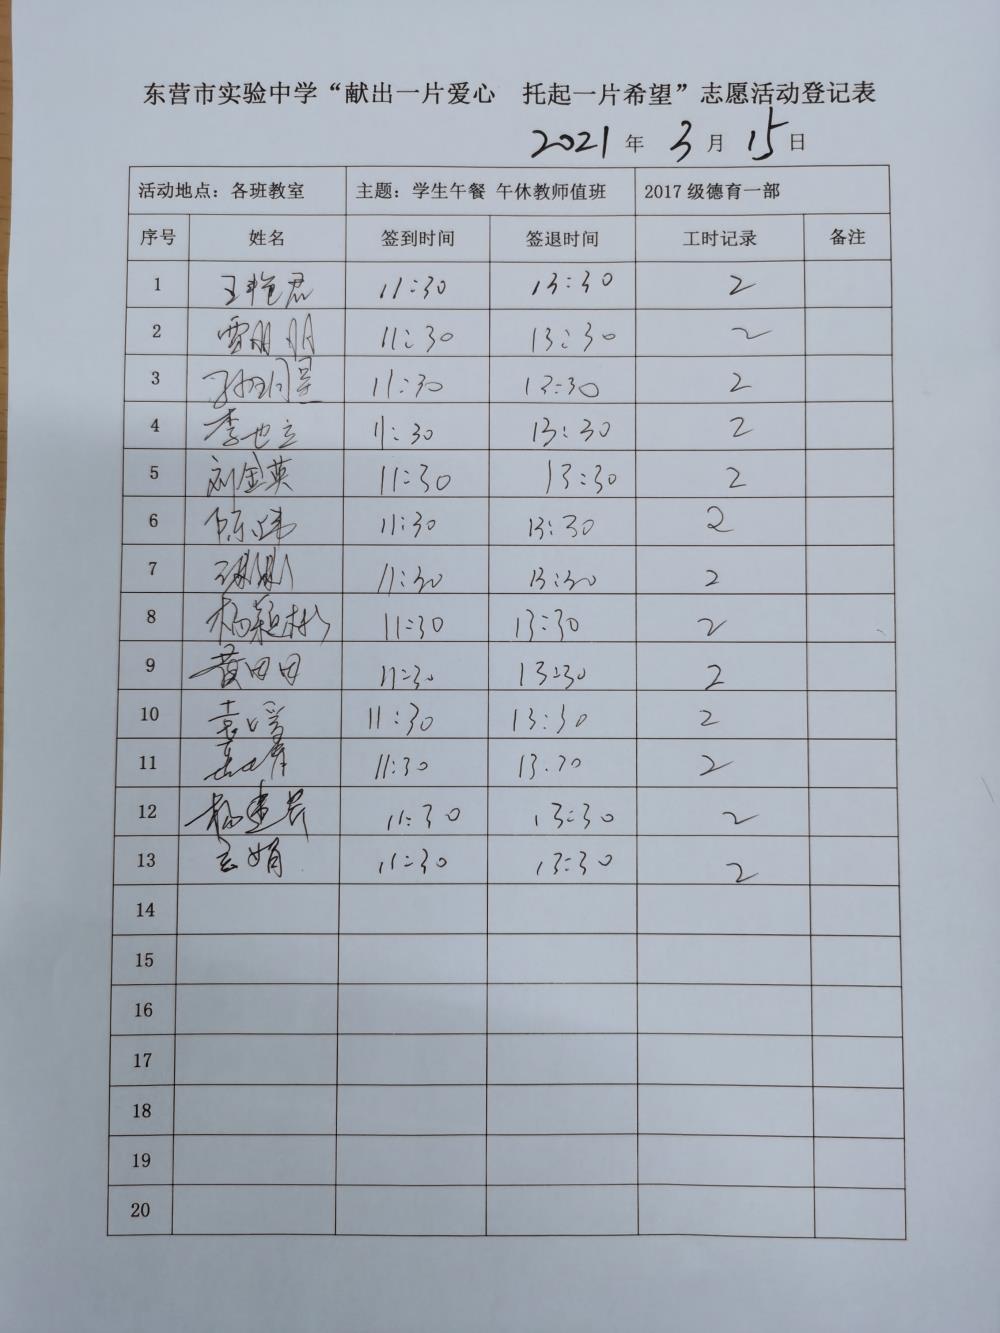 东营市实验中学“献出一片爱心 托起一片希望”志愿活动登记表
2021年 3月 15日
活动地点：各班教室 主题：学生午餐 午休教师值班 2017级德育一部
序号 姓名 签到时间 签退时间 工时记录 备注
1 王艳君 11:30 13:30 2
2 贾朋朋 11:30 13:30 2
3 11:30 13:30 2
4 李世立 11:30 13:30 2
5 刘金英 11:30 13:30 2
6 陈伟 11:30 13:30 2
7 11:30 13:30 2
8 杨颖彬 11:30 13:30 2
9 黄田田 11:30 13:30 2
10 11:30 13:30 2
11 11:30 13.30 2
12 11:30 13:30 2
13 娟 11:30 13:30 2
14
15
16
17
18
19
20